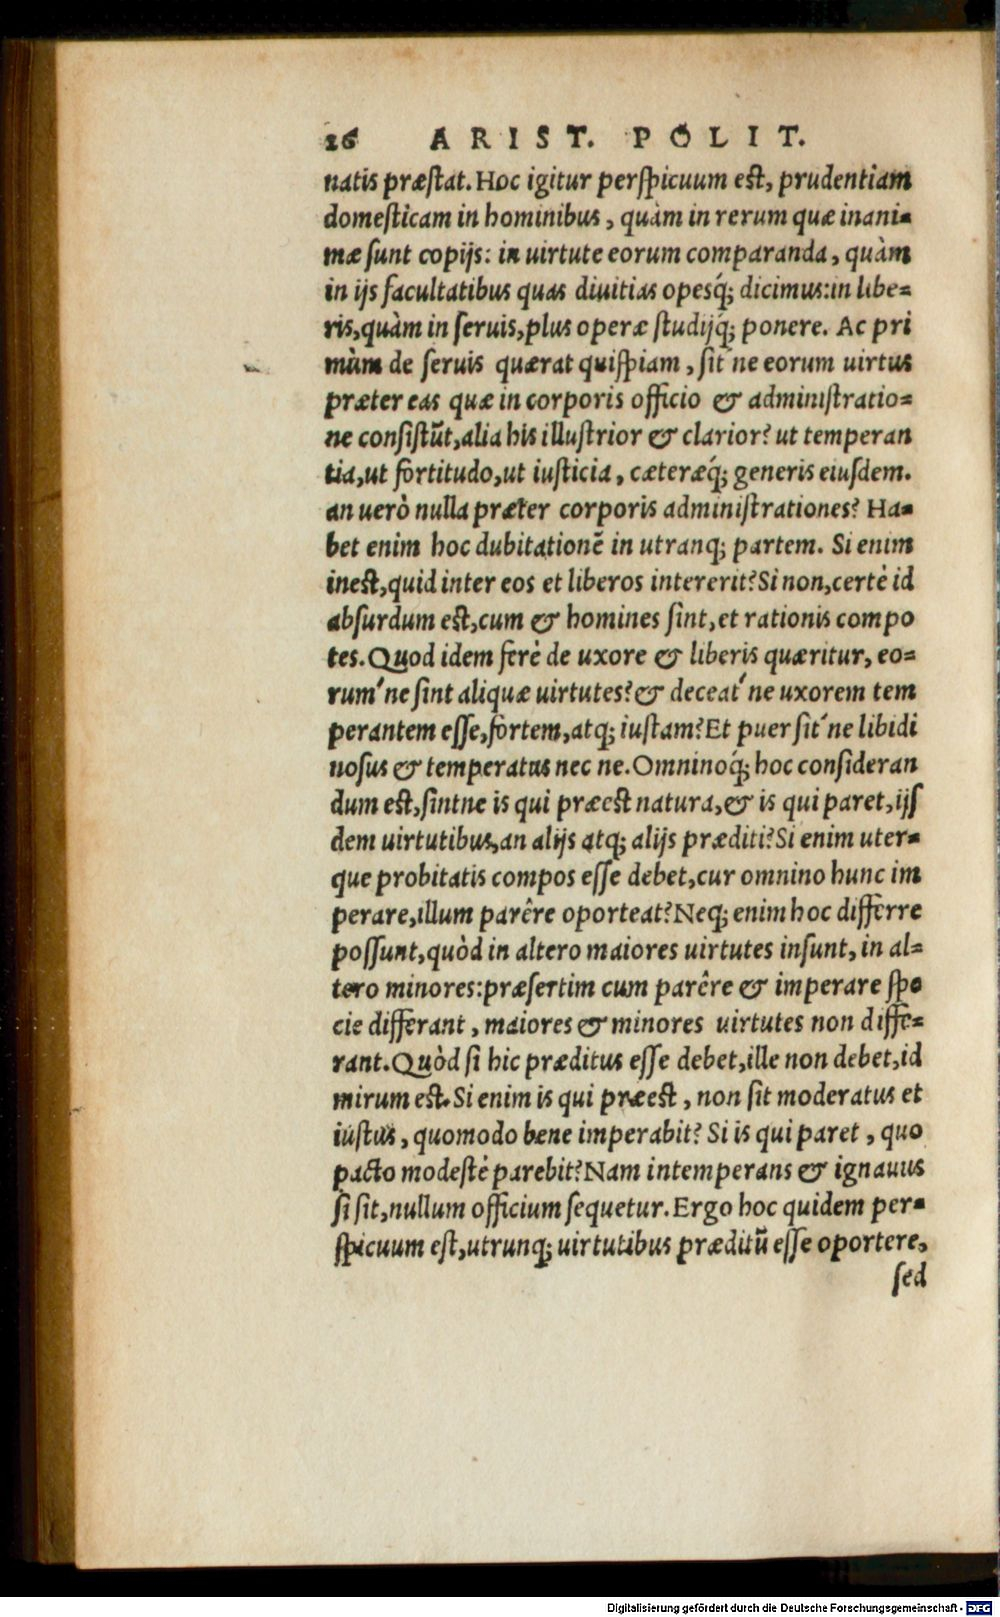 26 ARIST. POLIT.
natis præſtat. Hoc igitur perſpicuum eſt, prudentiam
domeſticam in hominibus, quàm in rerum quæ inani-
mæ ſunt copijs: in uirtute eorum comparanda, quàm
in ijs facultatibus quas diuitias opesq́; dicimus: in libe-
ris, quàm in ſeruis, plus operæ ſtudijq́; ponere. Ac pri
mùm de ſeruis quærat quiſpiam, ſit´ne eorum uirtus
præter eas quæ in corporis officio & adminiſtratio-
ne conſiſtūt, alia his illuſtrior & clarior? ut temperan
tia, ut fortitudo, ut iuſticia, cæteræq́; generis eiuſdem.
an uerò nulla præter corporis adminiſtrationes? Ha-
bet enim hoc dubitationē in utranq; partem. Si enim
ineſt, quid inter eos et liberos intererit? Si non, certè id
abſurdum eſt, cum & homines ſint, et rationis compo
tes. Quod idem ferè de uxore & liberis quæritur, eo-
rum´ne ſint aliquæ uirtutes? & deceat´ne uxorem tem
perantem eſſe, fortem, atq; iuſtam? Et puer ſit´ne libidi
noſus & temperatus nec ne. Omninoq́; hoc conſideran
dum eſt, ſintne is qui præeſt natura, & is qui paret, ijſ
dem uirtutibus, an alijs atq; alijs præditi? Si enim uter-
que probitatis compos eſſe debet, cur omnino hunc im
perare, illum parêre oporteat? Neq; enim hoc differre
poſſunt, quòd in altero maiores uirtutes inſunt, in al-
tero minores: præſertim cum parêre & imperare ſpe
cie differant, maiores & minores uirtutes non diffe-
rant. Quòd ſi hic præditus eſſe debet, ille non debet, id
mirum eſt. Si enim is qui præeſt, non ſit moderatus et
iuſtus, quomodo bene imperabit? Si is qui paret, quo
pacto modeſtè parebit? Nam intemperans & ignauus
ſi ſit, nullum officium ſequetur. Ergo hoc quidem per-
ſpicuum eſt, utrunq; uirtutibus præditū eſſe oportere,
ſed
Digitalisierung gefördert durch die Deutsche Forschungsgemeinschaft - DFG